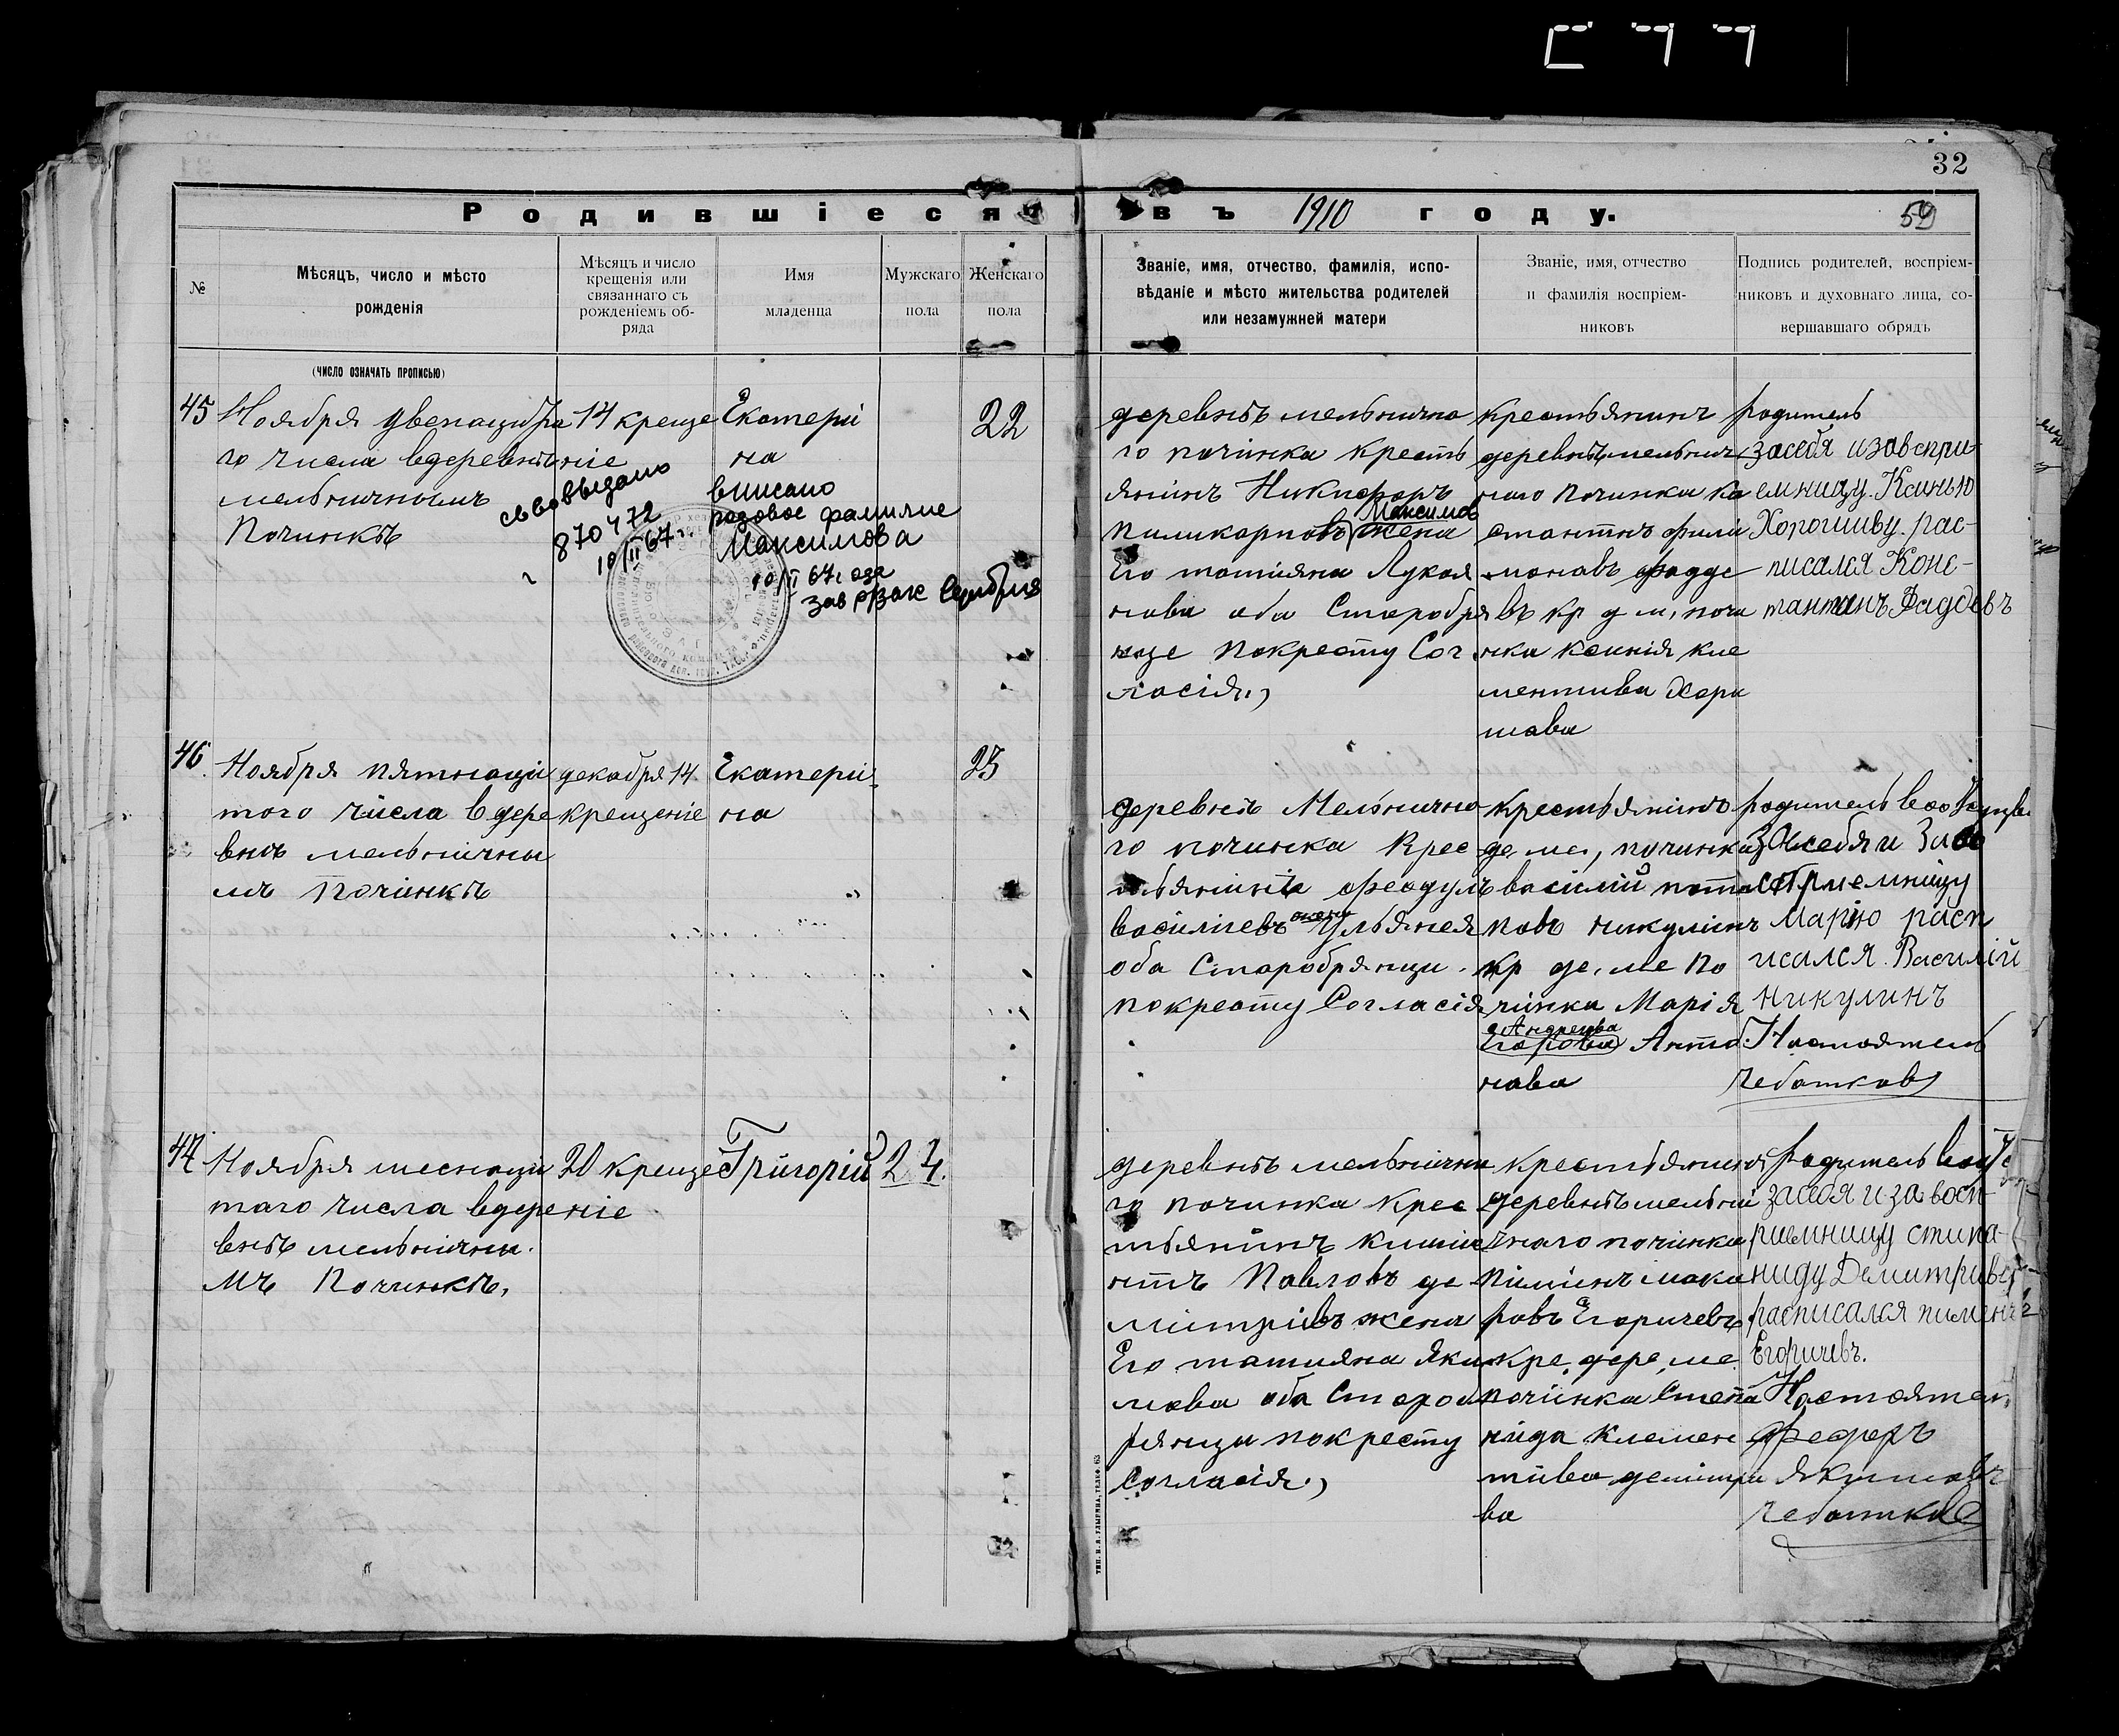 32
Родившіеся въ 1910 году.
59
№
Мѣсяцъ, число и мѣсто
рожденія
Мѣсяцъ и число
крещенія или
связаннаго съ
рожденіемъ об-
ряда
Имя
младенца
Мужскаго
пола
Женскаго
пола
Званіе, имя, отчество, фамилія, испо-
вѣданіе и мѣсто жительства родителей
или незамужней матери
Званіе, имя, отчество
и фамилія воспріем-
никовъ
Подпись родителей, воспріем-
никовъ и духовнаго лица, со-
вершавшаго обрядъ
(число означать прописью)
45
Ноября
го числа вдеревнѣ
мельничномъ
Починкѣ
14 креще
ніе
Екатери
на
22
870472
10/II 67 г.
вписано
родовое фамилие
Максимова
10/II 67 года
зав
деревнѣ мельнично
го починка кресть
янинъ Никифоръ
Максимов
пиликарповъ жена
Его татияна Лукоя
нова оба Старобря
нце покресту Сог
ласія.,
крестьянинъ
деревнѣ мельнич
наго починка ко
стантнъ фили
моновъ фадде
въ кр д м, почи
нка ксинія кле
ментива Хоро
шава
родитель
засебя изавспри
емницу. Ксинью
Хорошиву. рас-
писался Конс-
тантинъ Фаддевъ
46
Ноября пятнаци
того числа вдере
внѣ мельничны
мъ Починкѣ
декабря 14.
крещеніе
Екатери
на
23
деревнѣ Мельнично
го починка Крес
тьянинъ феодулъ
жена
василиевъ Ульянея
оба Старобрянци.
покресту Согласія
крестьянинъ
де, ме, починка
василий пота
повъ никулинъ
кр де, ме По
чинка Марія
Андреива
Егорова Анто
нава
родитель
Засебя и За во
сприемницу
Марію расп
исался. Василій
никулинъ
Настоятель
Чеботковъ
47
Ноября шеснаци
таго числа вдере
внѣ мельнични.
мъ Починкѣ,
20 креще
ніе
Григорій
24.
деревнѣ мельнични
го починка крес
тьянинъ климе
нтъ Павловъ де
митривъ жена
Его татияна Яки
мова оба Староб
рянцы покресту
Согласія.,
крестьянин
деревнѣ мельни
чнаго починка
пиминъ мака
ровъ Егоричевъ
кре, дере, ме
починка Степа
нида клемен
тива демитри
ва
родитель
засебя и за восп
риемницу стипа-
ниду Демитриву
расписался пименъ
Егоричевъ.
Настоятель
Федоръ
Якимовъ
Чеботковъ